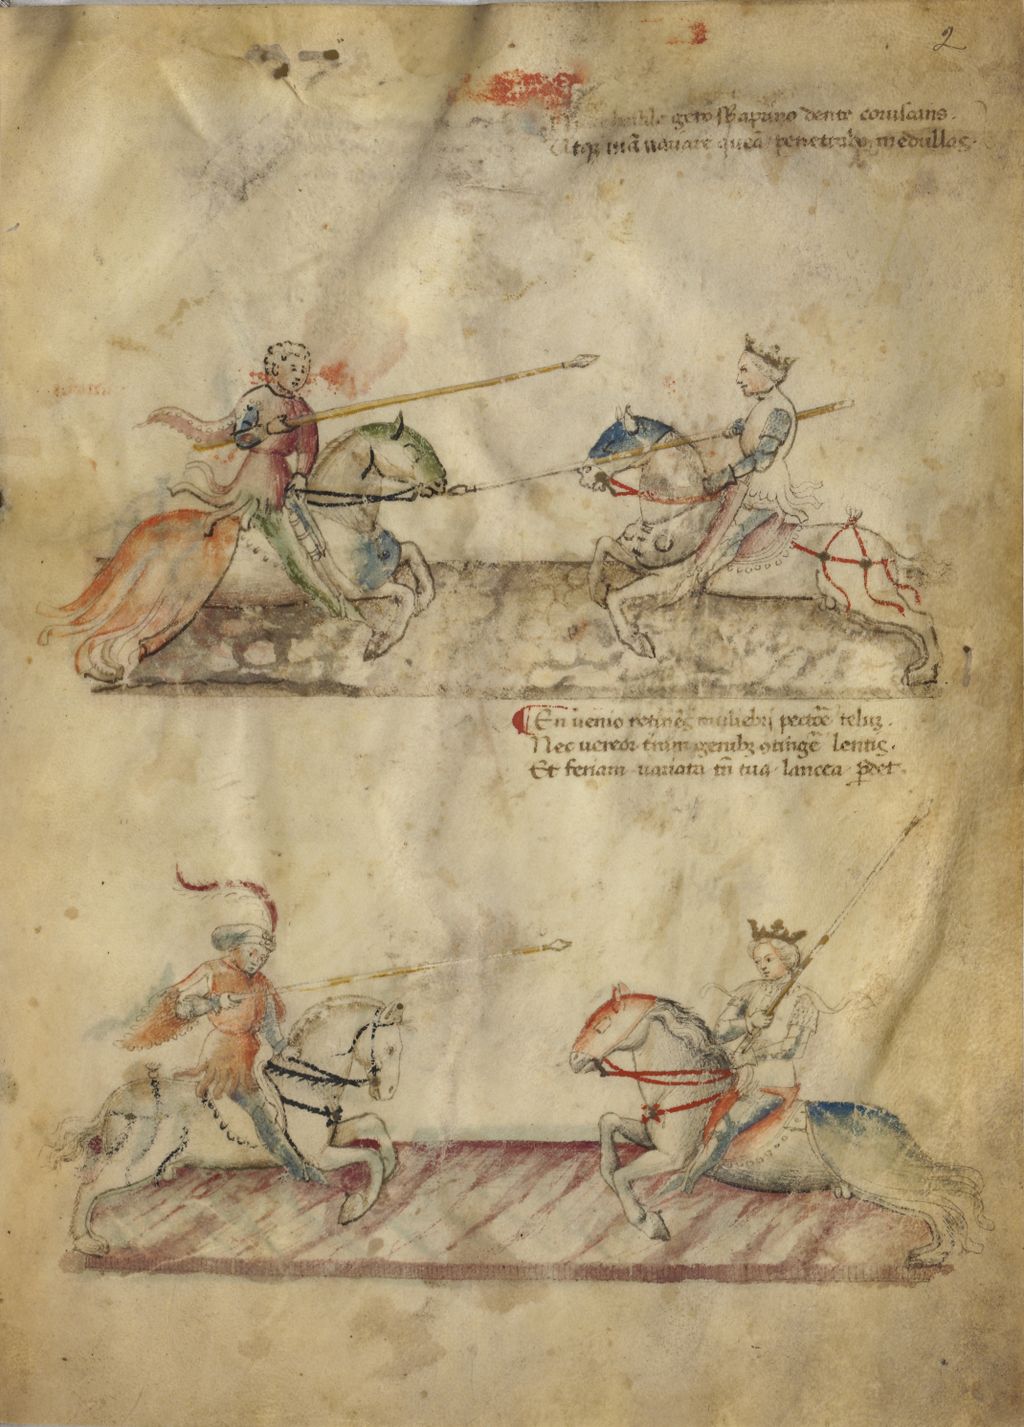 2
gero sb aprino dente coruscans.
Atqz navare queā penetrabo medullas.
En uenio retinēs muliebrj pectōe teluz.
Nec uereor genibz ɔtingē lentis.
Et feriam uariata tn̄ tua lancea ꝑdet.